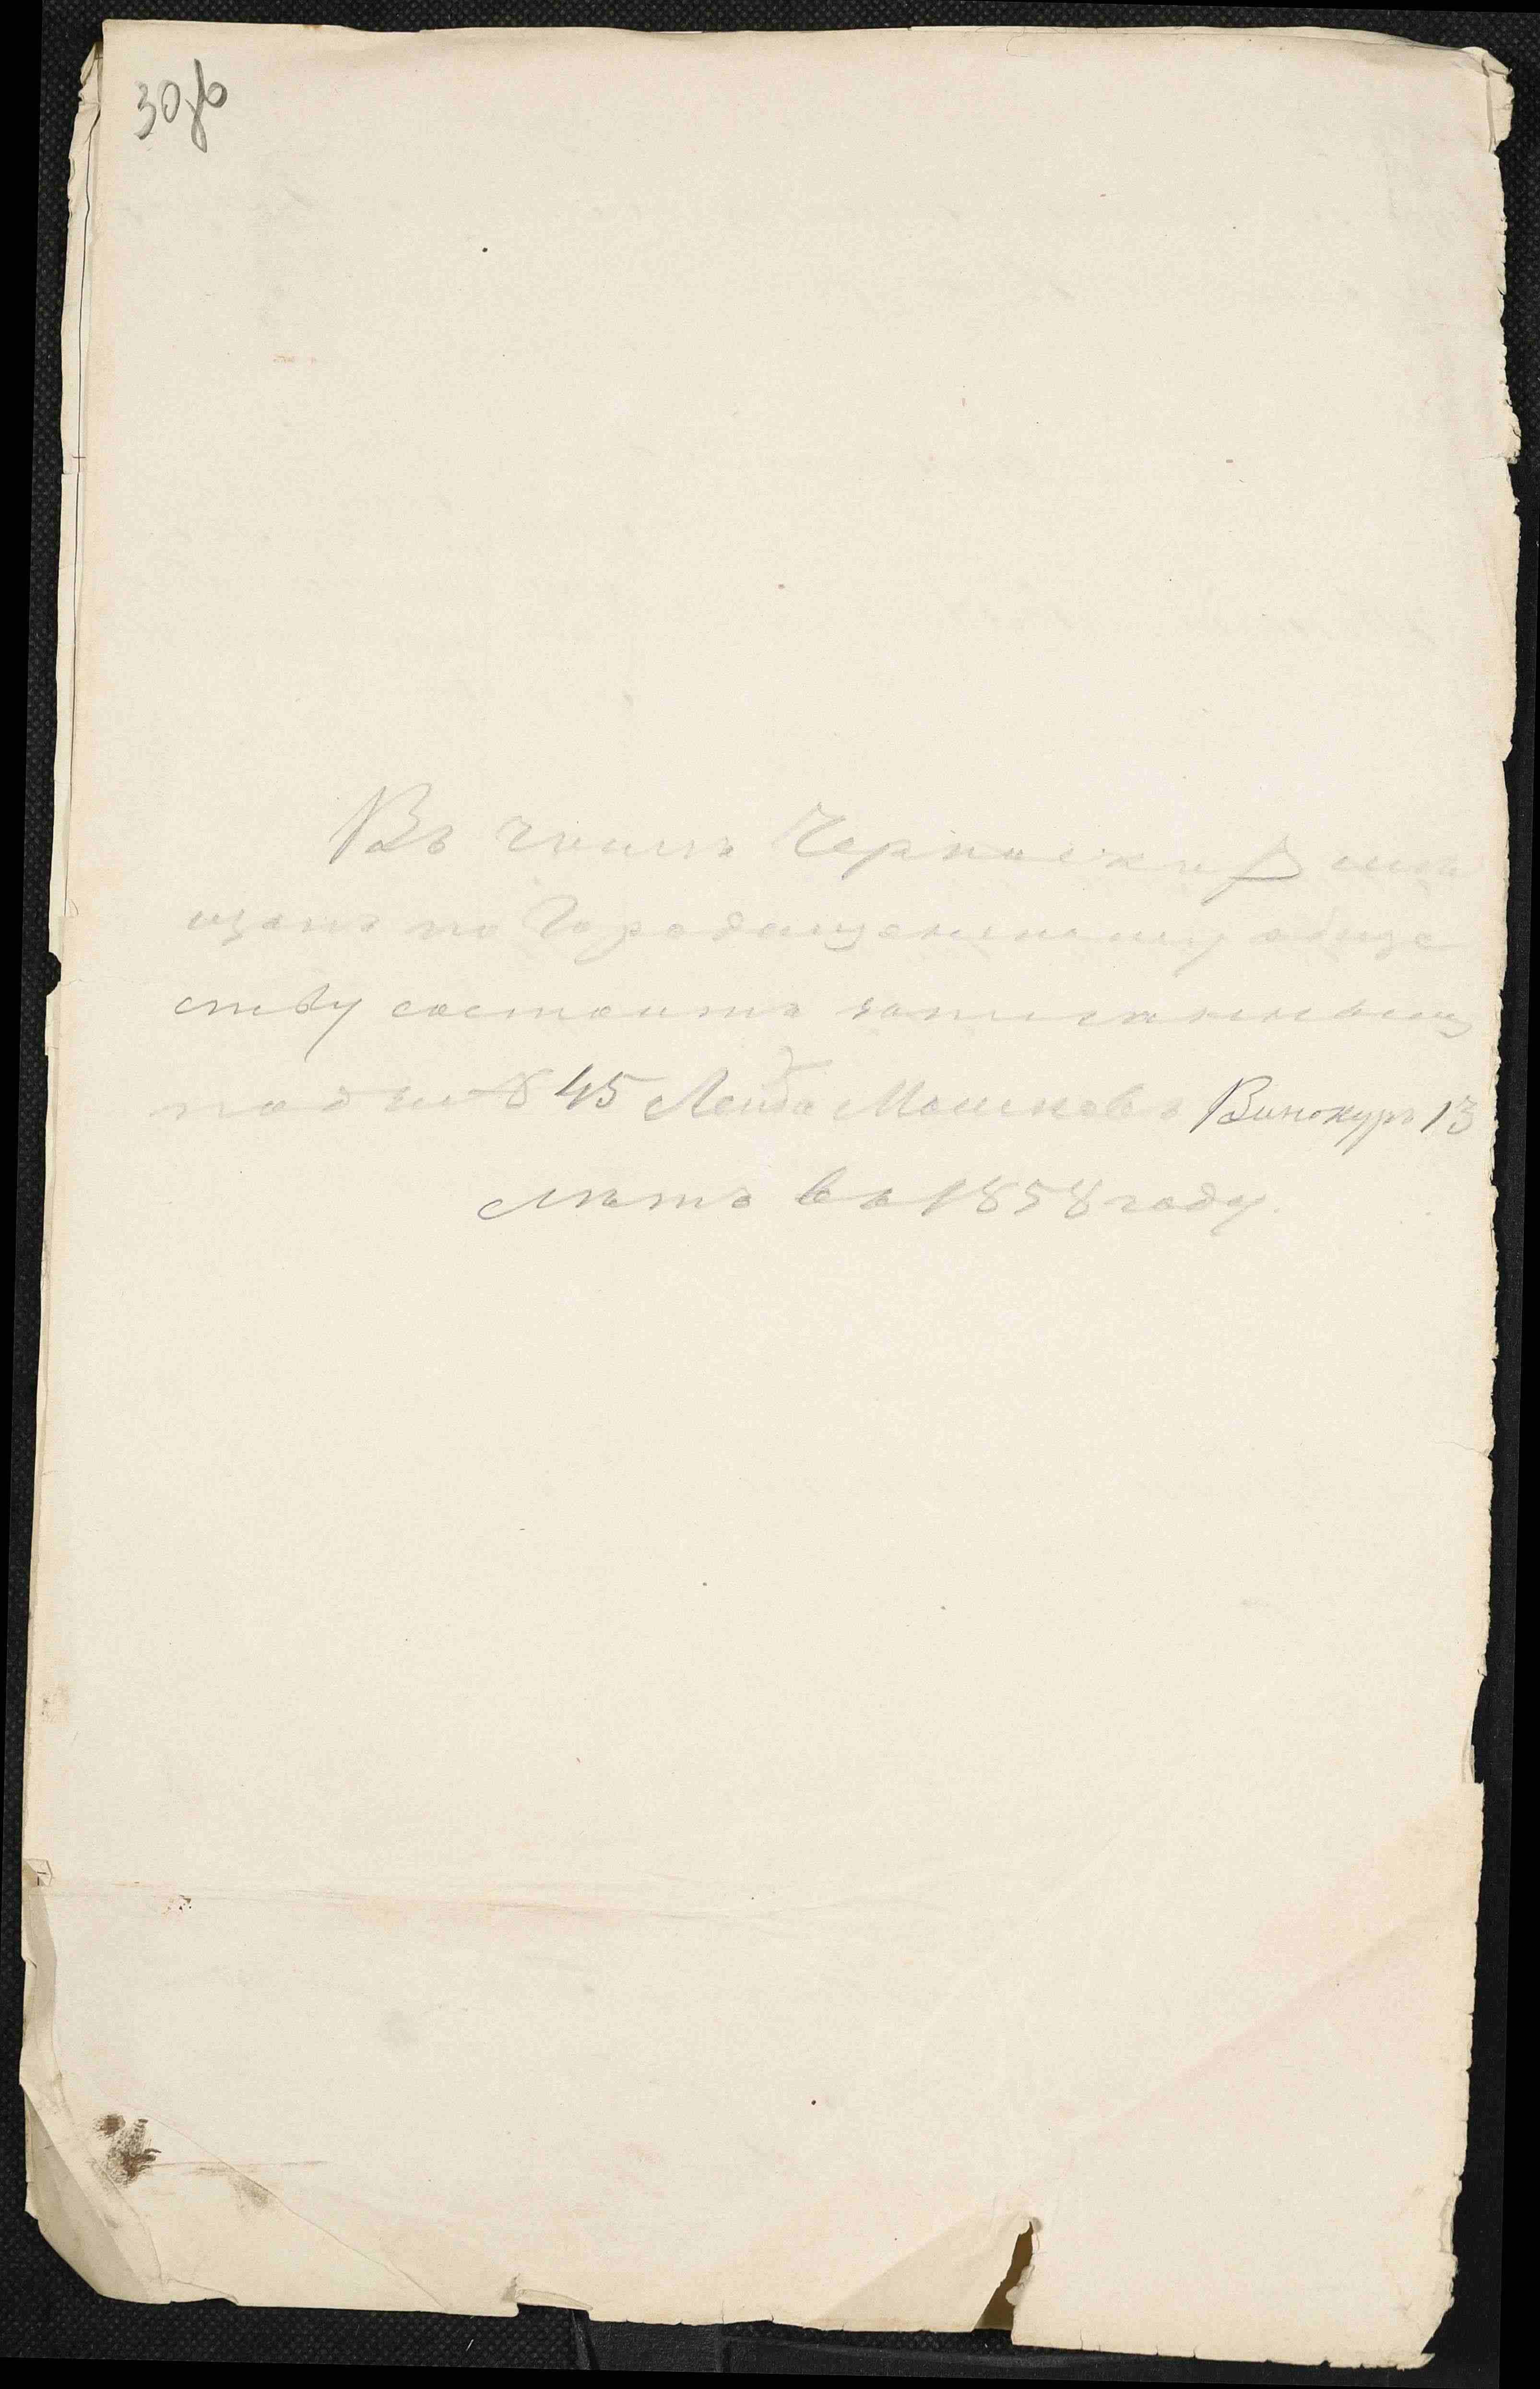 30 об
Въ числѣ Черкаскихъ мѣ
щанъ по Городищенскому обще
ству состоитъ записаннымъ
подъ № 45 Лейба Мошковъ Винокуръ 13
лѣтъ въ 1858 году.